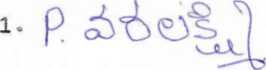 1. P. వరలక్ష్మి